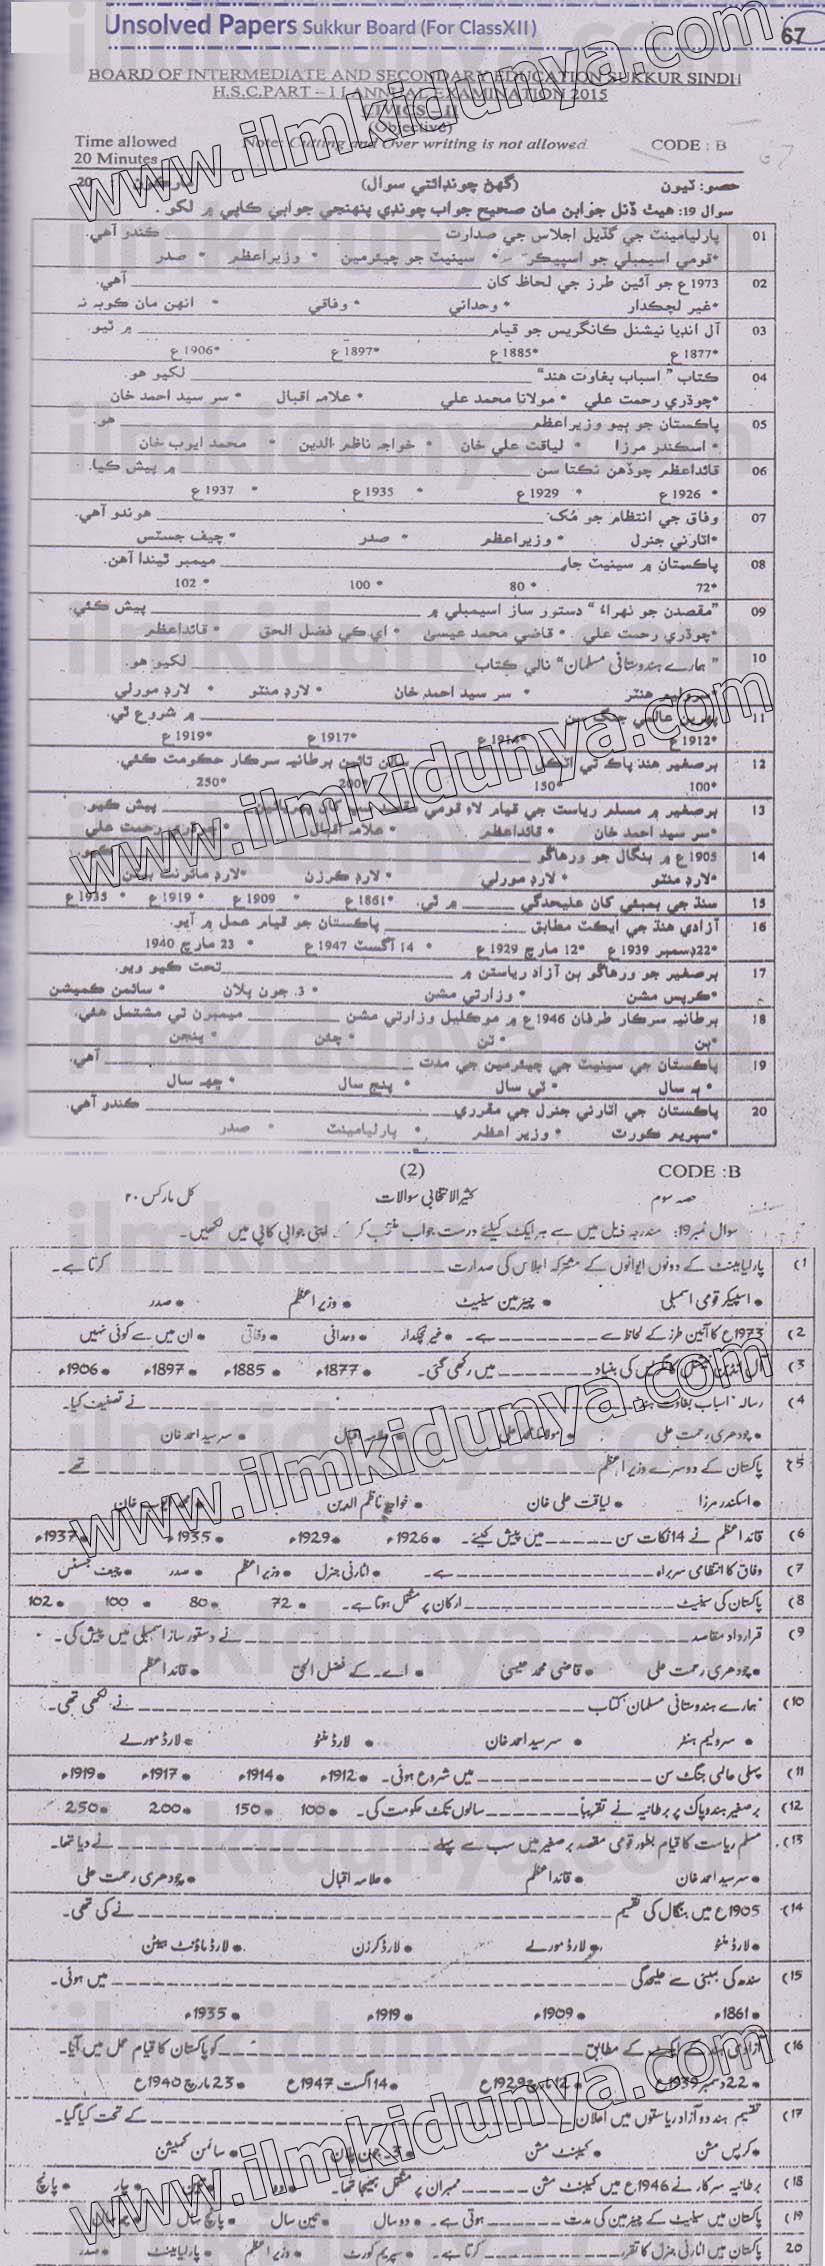 Unsolved Papers Sukkur Board (For ClassXII)
67
BOARD OF INTERMEDIATE AND SECONDARY EDUCATION SUKKUR SINDH
H.S.C.PART – II ANNUAL EXAMINATION 2015
CIVICS - II
(Objective)
Time allowed
20 Minutes
Note: Cutting and Over writing is not allowed.
CODE : B
حصو: ٽيون (گهڻ چونڊائتي سوال) مارڪون 20
سوال 19: هيٺ ڏنل جوابن مان صحيح جواب چونڊي پنهنجي جوابي ڪاپي ۾ لکو.
01 پارليامينٽ جي گڏيل اجلاس جي صدارت ______ ڪندو آهي.
*قومي اسيمبلي جو اسپيڪر * سينيٽ جو چيئرمين * وزيراعظم * صدر
02 1973ع جو آئين طرز جي لحاظ کان ______ آهي.
*غير لچڪدار * وحداني * وفاقي * انهن مان ڪوبه نہ
03 آل انڊيا نيشنل ڪانگريس جو قيام ______ ۾ ٿيو.
*1877ع *1885ع *1897ع *1906ع
04 ڪتاب " اسباب بغاوت هند" ______ لکيو هو.
*چوڌري رحمت علي * مولانا محمد علي * علامہ اقبال * سر سيد احمد خان
05 پاڪستان جو ٻيو وزيراعظم ______ هو.
* اسڪندر مرزا * لياقت علي خان * خواجہ ناظم الدين * محمد ايوب خان
06 قائداعظم چوڏهن نڪتا سن ______ ۾ پيش ڪيا.
* 1926ع * 1929ع * 1935ع * 1937ع
07 وفاق جي انتظام جو مُک ______ هوندو آهي.
*اٽارني جنرل * وزيراعظم * صدر * چيف جسٽس
08 پاڪستان ۾ سينيٽ جا ______ ميمبر ٿيندا آهن.
*72 * 80 * 100 * 102
09 "مقصدن جو ٺهراءُ " دستور ساز اسيمبلي ۾ ______ پيش ڪئي.
*چوڌري رحمت علي * قاضي محمد عيسيٰ * اي ڪي فضل الحق * قائداعظم
10 " ہمارے ہندوستانی مسلمان" نالي ڪتاب ______ لکيو هو.
*سروليم هنٽر * سر سيد احمد خان * لارڊ منٽو * لارڊ مورلي
11 پهرين عالمي جنگ سن ______ ۾ شروع ٿي.
*1912ع *1914ع *1917ع *1919ع
12 برصغير هند پاڪ تي اٽڪل ______ سالن تائين برطانيہ سرڪار حڪومت ڪئي.
*100 *150 *200 *250
13 برصغير ۾ مسلم رياست جي قيام لاءِ قومي مقصد سڀ کان پهريائين ______ پيش ڪيو.
*سر سيد احمد خان * قائداعظم * علامہ اقبال * چوڌري رحمت علي
14 1905ع ۾ بنگال جو ورهاڱو ______ ڪيو.
*لارڊ منٽو * لارڊ مورلي * لارڊ ڪرزن *لارڊ مائونٽ بيٽن
15 سنڌ جي بمبئي کان عليحدگي ______ ۾ ٿي. *1861ع * 1909ع * 1919ع * 1935ع
16 آزادي هند جي ايڪٽ مطابق ______ پاڪستان جو قيام عمل ۾ آيو.
*22ڊسمبر 1939ع *12 مارچ 1929ع * 14 آگسٽ 1947ع * 23 مارچ 1940
17 برصغير جو ورهاڱو ٻن آزاد رياستن ۾ ______ تحت ڪيو ويو.
*ڪرپس مشن * وزارتي مشن * 3. جون پلان * سائمن ڪميشن
18 برطانيہ سرڪار طرفان 1946ع ۾ موڪليل وزارتي مشن ______ ميمبرن تي مشتمل هئي.
*ٻن *ٽن * چئن * پنجن
19 پاڪستان جي سينيٽ جي چيئرمين جي مدت ______ آهي.
* ٻہ سال * ٽي سال * پنج سال * ڇهہ سال
20 پاڪستان جي اٽارني جنرل جي مقرري ______ ڪندو آهي.
*سپريم ڪورٽ * وزير اعظم * پارليامينٽ * صدر
(2)
CODE :B
حصہ سوم کثیر الانتخابی سوالات کل مارکس ۲۰
سوال نمبر 19: مندرجہ ذیل میں سے ہر ایک کیلئے درست جواب منتخب کر کے اپنی جوابی کاپی میں لکھیں۔
(1 پارلیامینٹ کے دونوں ایوانوں کے مشترکہ اجلاس کی صدارت ______ کرتا ہے۔
• اسپیکر قومی اسمبلی • چیئرمین سینیٹ • وزیر اعظم • صدر
(2 1973ع کا آئین طرز کے لحاظ سے ______ ہے۔ • غیر لچکدار • وحدانی • وفاقی • ان میں سے کوئی نہیں
(3 آل انڈین نیشنل کانگریس کی بنیاد ______ میں رکھی گئی۔ • 1877ء • 1885ء • 1897ء • 1906ء
(4 رسالہ اسباب بغاوت ہند ______ نے تصنیف کیا۔
• چودھری رحمت علی • مولانا محمد علی • علامہ اقبال • سر سید احمد خان
(5 پاکستان کے دوسرے وزیر اعظم ______ تھے۔
• اسکندر مرزا • لیاقت علی خان • خواجہ ناظم الدین • محمد ایوب خان
(6 قائد اعظم نے 14 نکات سن ______ میں پیش کیئے۔ • 1926ء • 1929ء • 1935ء • 1937ء
(7 وفاق کا انتظامی سربراہ ______ ہے۔ • اٹارنی جنرل • وزیر اعظم • صدر • چیف جسٹس
(8 پاکستان کی سینیٹ ______ ارکان پر مشتمل ہوتا ہے۔ • 72 • 80 • 100 • 102
(9 قرارداد مقاصد ______ نے دستور ساز اسمبلی میں پیش کی۔
• چودھری رحمت علی • قاضی محمد عیسیٰ • اے۔ کے فضل الحق • قائد اعظم
(10 'ہمارے ہندوستانی مسلمان' کتاب ______ نے لکھی تھی۔
• سر ولیم ہنٹر • سر سید احمد خان • لارڈ منٹو • لارڈ مورلے
(11 پہلی عالمی جنگ سن ______ میں شروع ہوئی۔ • 1912ء • 1914ء • 1917ء • 1919ء
(12 برصغیر ہندوپاک پر برطانیہ نے تقریباً ______ سالوں تک حکومت کی۔ • 100 • 150 • 200 • 250
(13 مسلم ریاست کا قیام بطور قومی مقصد برصغیر میں سب سے پہلے ______ نے دیا تھا۔
• سر سید احمد خان • قائد اعظم • علامہ اقبال • چودھری رحمت علی
(14 1905ع میں بنگال کی تقسیم ______ نے کی تھی۔
• لارڈ منٹو • لارڈ مورلے • لارڈ کرزن • لارڈ ماؤنٹ بیٹن
(15 سندھ کی بمبئی سے علیحدگی ______ میں ہوئی۔
• 1861ء • 1909ء • 1919ء • 1935ء
(16 آزادی ہند کے ایکٹ کے مطابق ______ کو پاکستان کا قیام عمل میں آیا۔
• 22 دسمبر 1939ع • 12 مارچ 1929ع • 14 اگست 1947ع • 23 مارچ 1940ع
(17 تقسیم ہند دو آزاد ریاستوں میں اعلان ______ کے تحت کیا گیا۔
• کرپس مشن • کیبنٹ مشن • 3۔ جون پلان • سائمن کمیشن
(18 برطانیہ سرکار نے 1946ع میں کیبنٹ مشن ______ ممبران پر مشتمل بھیجا تھا۔ • دو • تین • چار • پانچ
(19 پاکستان میں سینیٹ کے چیئرمین کی مدت ______ ہوتی ہے۔ • دو سال • تین سال • پانچ سال • چھ سال
20 پاکستان میں اٹارنی جنرل کا تقرر ______ کرتا ہے۔ • سپریم کورٹ • وزیر اعظم • پارلیامینٹ • صدر
www.ilmkidunya.com
www.ilmkidunya.com
www.ilmkidunya.com
www.ilmkidunya.com